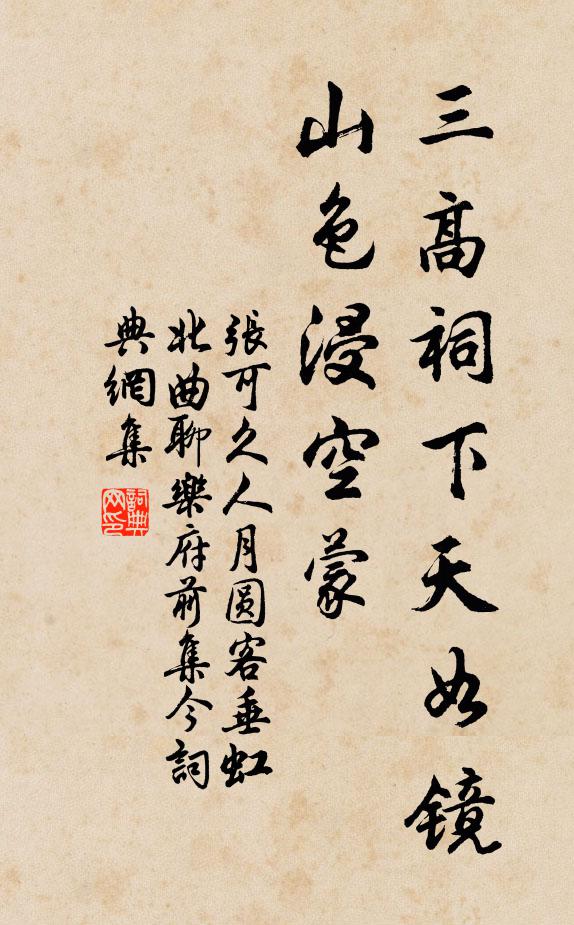 三高祠下天如镜
山色浸空蒙
張可久人月圆客垂虹
北曲聊樂府前集今詞
典網集
詞典網印